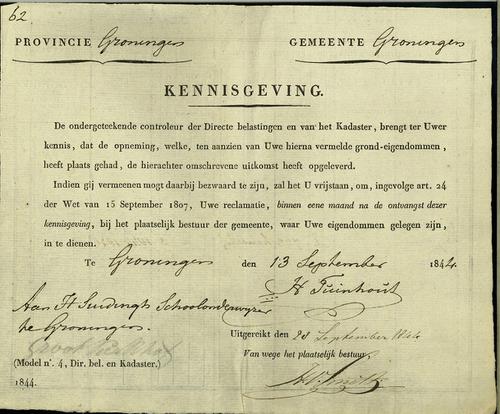 62
PROVINCIE Groningen GEMEENTE Groningen
KENNISGEVING.
De ondergeteekende controleur der Directe belastingen en van het Kadaster, brengt ter Uwer
kennis, dat de opneming, welke, ten aanzien van Uwe hierna vermelde grond-eigendommen,
heeft plaats gehad, de hierachter omschrevene uitkomst heeft opgeleverd.
Indien gij vermeenen mogt daarbij bezwaard te zijn, zal het U vrijstaan, om, ingevolge art. 24
der Wet van 15 September 1807, Uwe reclamatie, binnen eene maand na de ontvangst dezer
kennisgeving, bij het plaatselijk bestuur der gemeente, waar Uwe eigendommen gelegen zijn,
in te dienen.
Te Groningen den 13 September 1844.
H Tuinhout
Aan H Suidingh Schoolonderwyzer
te Groningen.
Uitgereikt den 23 September 1844
Van wege het plaatselijk bestuur
(Model n°. 4, Dir. bel. en Kadaster.)
1844.